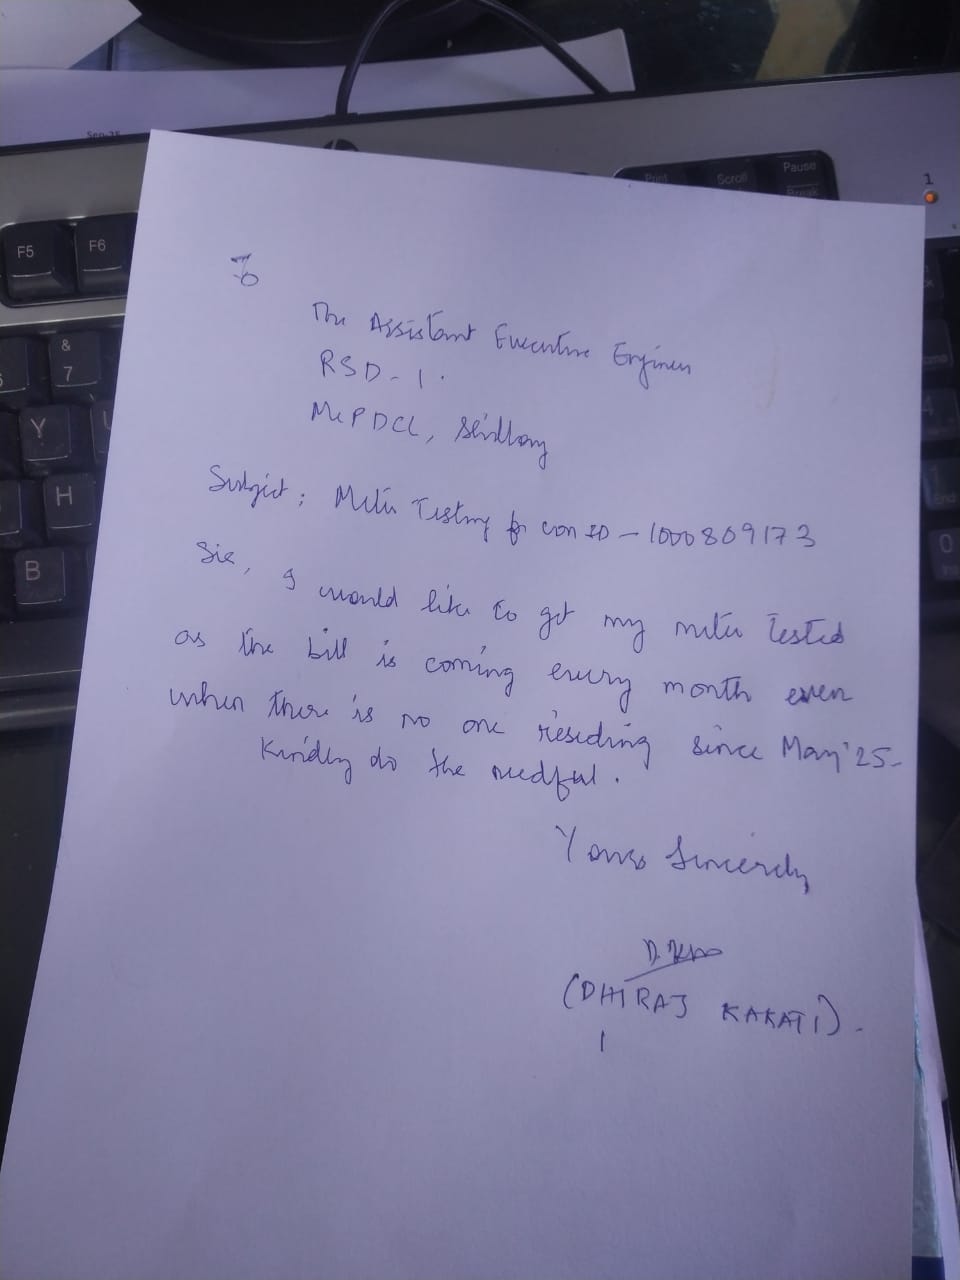 To
The Assistant Executive Engineer
RSD-1.
MePDCL, Shillong
Subject: Meter Testing for con ID - 1000809173
Sir, I would like to get my meter tested
as the bill is coming every month even
when there is no one residing since May'25-
Kindly do the needful.
Yours Sincerely
(DHIRAJ KAKATI).
F5
F6
&
7
Y
H
B
Print
Scroll
Pause
Break
1
0